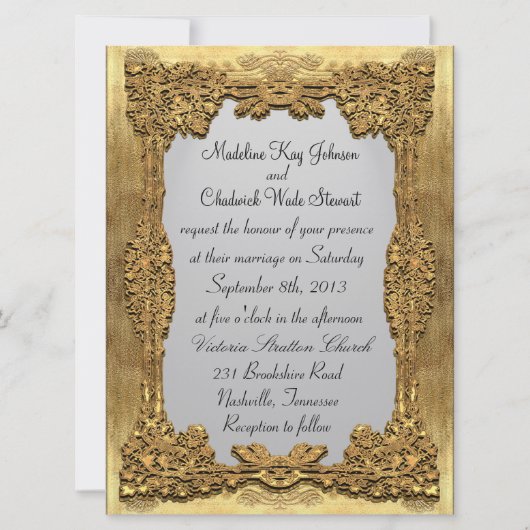 Madeline Kay Johnson
and
Chadwick Wade Stewart
request the honour of your presence
at their marriage on Saturday
September 8th, 2013
at five o'clock in the afternoon
Victoria Stratton Church
231 Brookshire Road
Nashville, Tennessee
Reception to follow